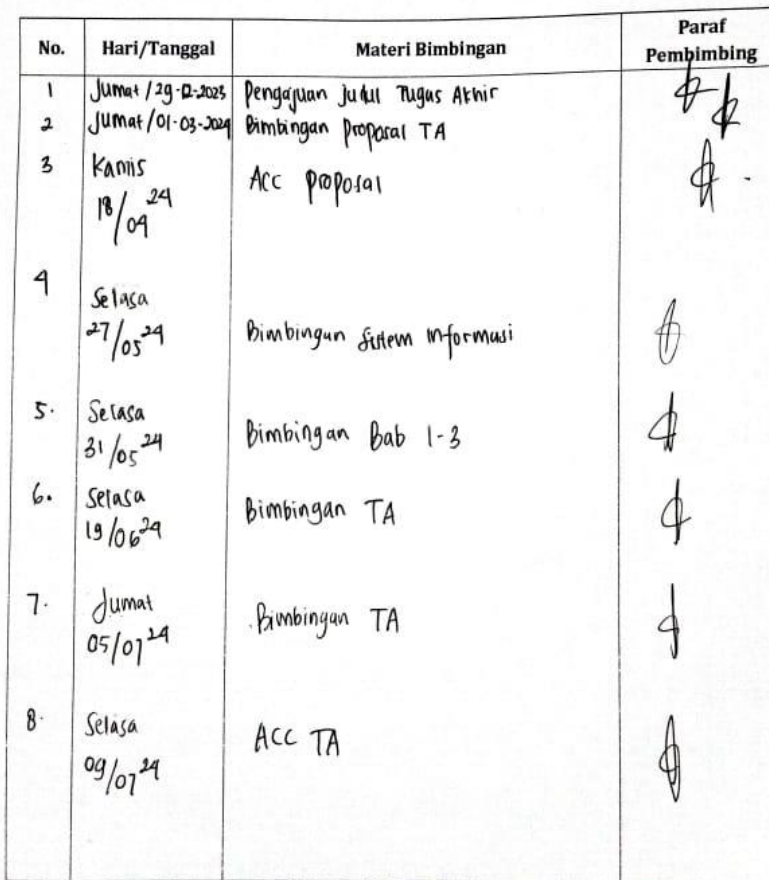 No. Hari/Tanggal Materi Bimbingan Paraf Pembimbing
1 Jumat / 29-12-2023 Pengajuan Judul Tugas Akhir
2 Jumat / 01-03-2024 Bimbingan Proposal TA
3 Kamis
18/04 24 Acc proposal
4 Selasa
27/05 24 Bimbingan Sistem Informasi
5. Selasa
31/05 24 Bimbingan Bab 1-3
6. Selasa
19/06 24 Bimbingan TA
7. Jumat
05/07 24 Bimbingan TA
8. Selasa
09/07 24 ACC TA